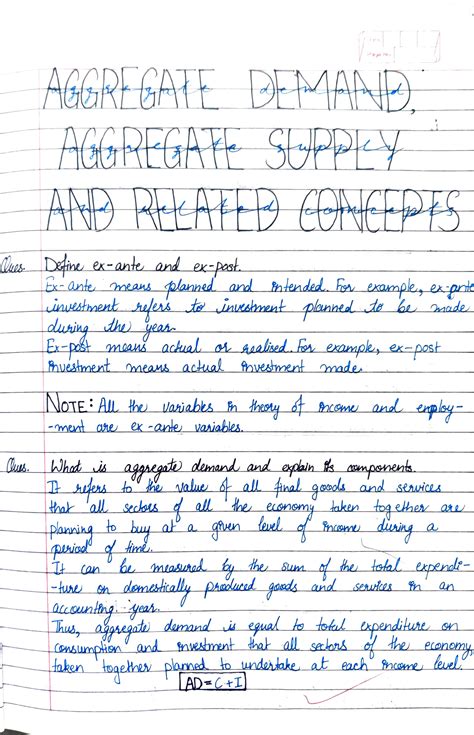 AGGREGATE DEMAND,
AGGREGATE SUPPLY
AND RELATED CONCEPTS
Ques. Define ex-ante and ex-post.
Ex-ante means planned and intended. For example, ex-ante
investment refers to investment planned to be made
during the year.
Ex-post means actual or realised. For example, ex-post
investment means actual investment made.
NOTE: All the variables in theory of income and employ-
-ment are ex-ante variables.
Ques. What is aggregate demand and explain its components.
It refers to the value of all final goods and services
that all sectors of all the economy taken together are
planning to buy at a given level of income during a
period of time.
It can be measured by the sum of the total expendi-
-ture on domestically produced goods and services in an
accounting year.
Thus, aggregate demand is equal to total expenditure on
consumption and investment that all sectors of the economy
taken together planned to undertake at each income level.
AD = C + I